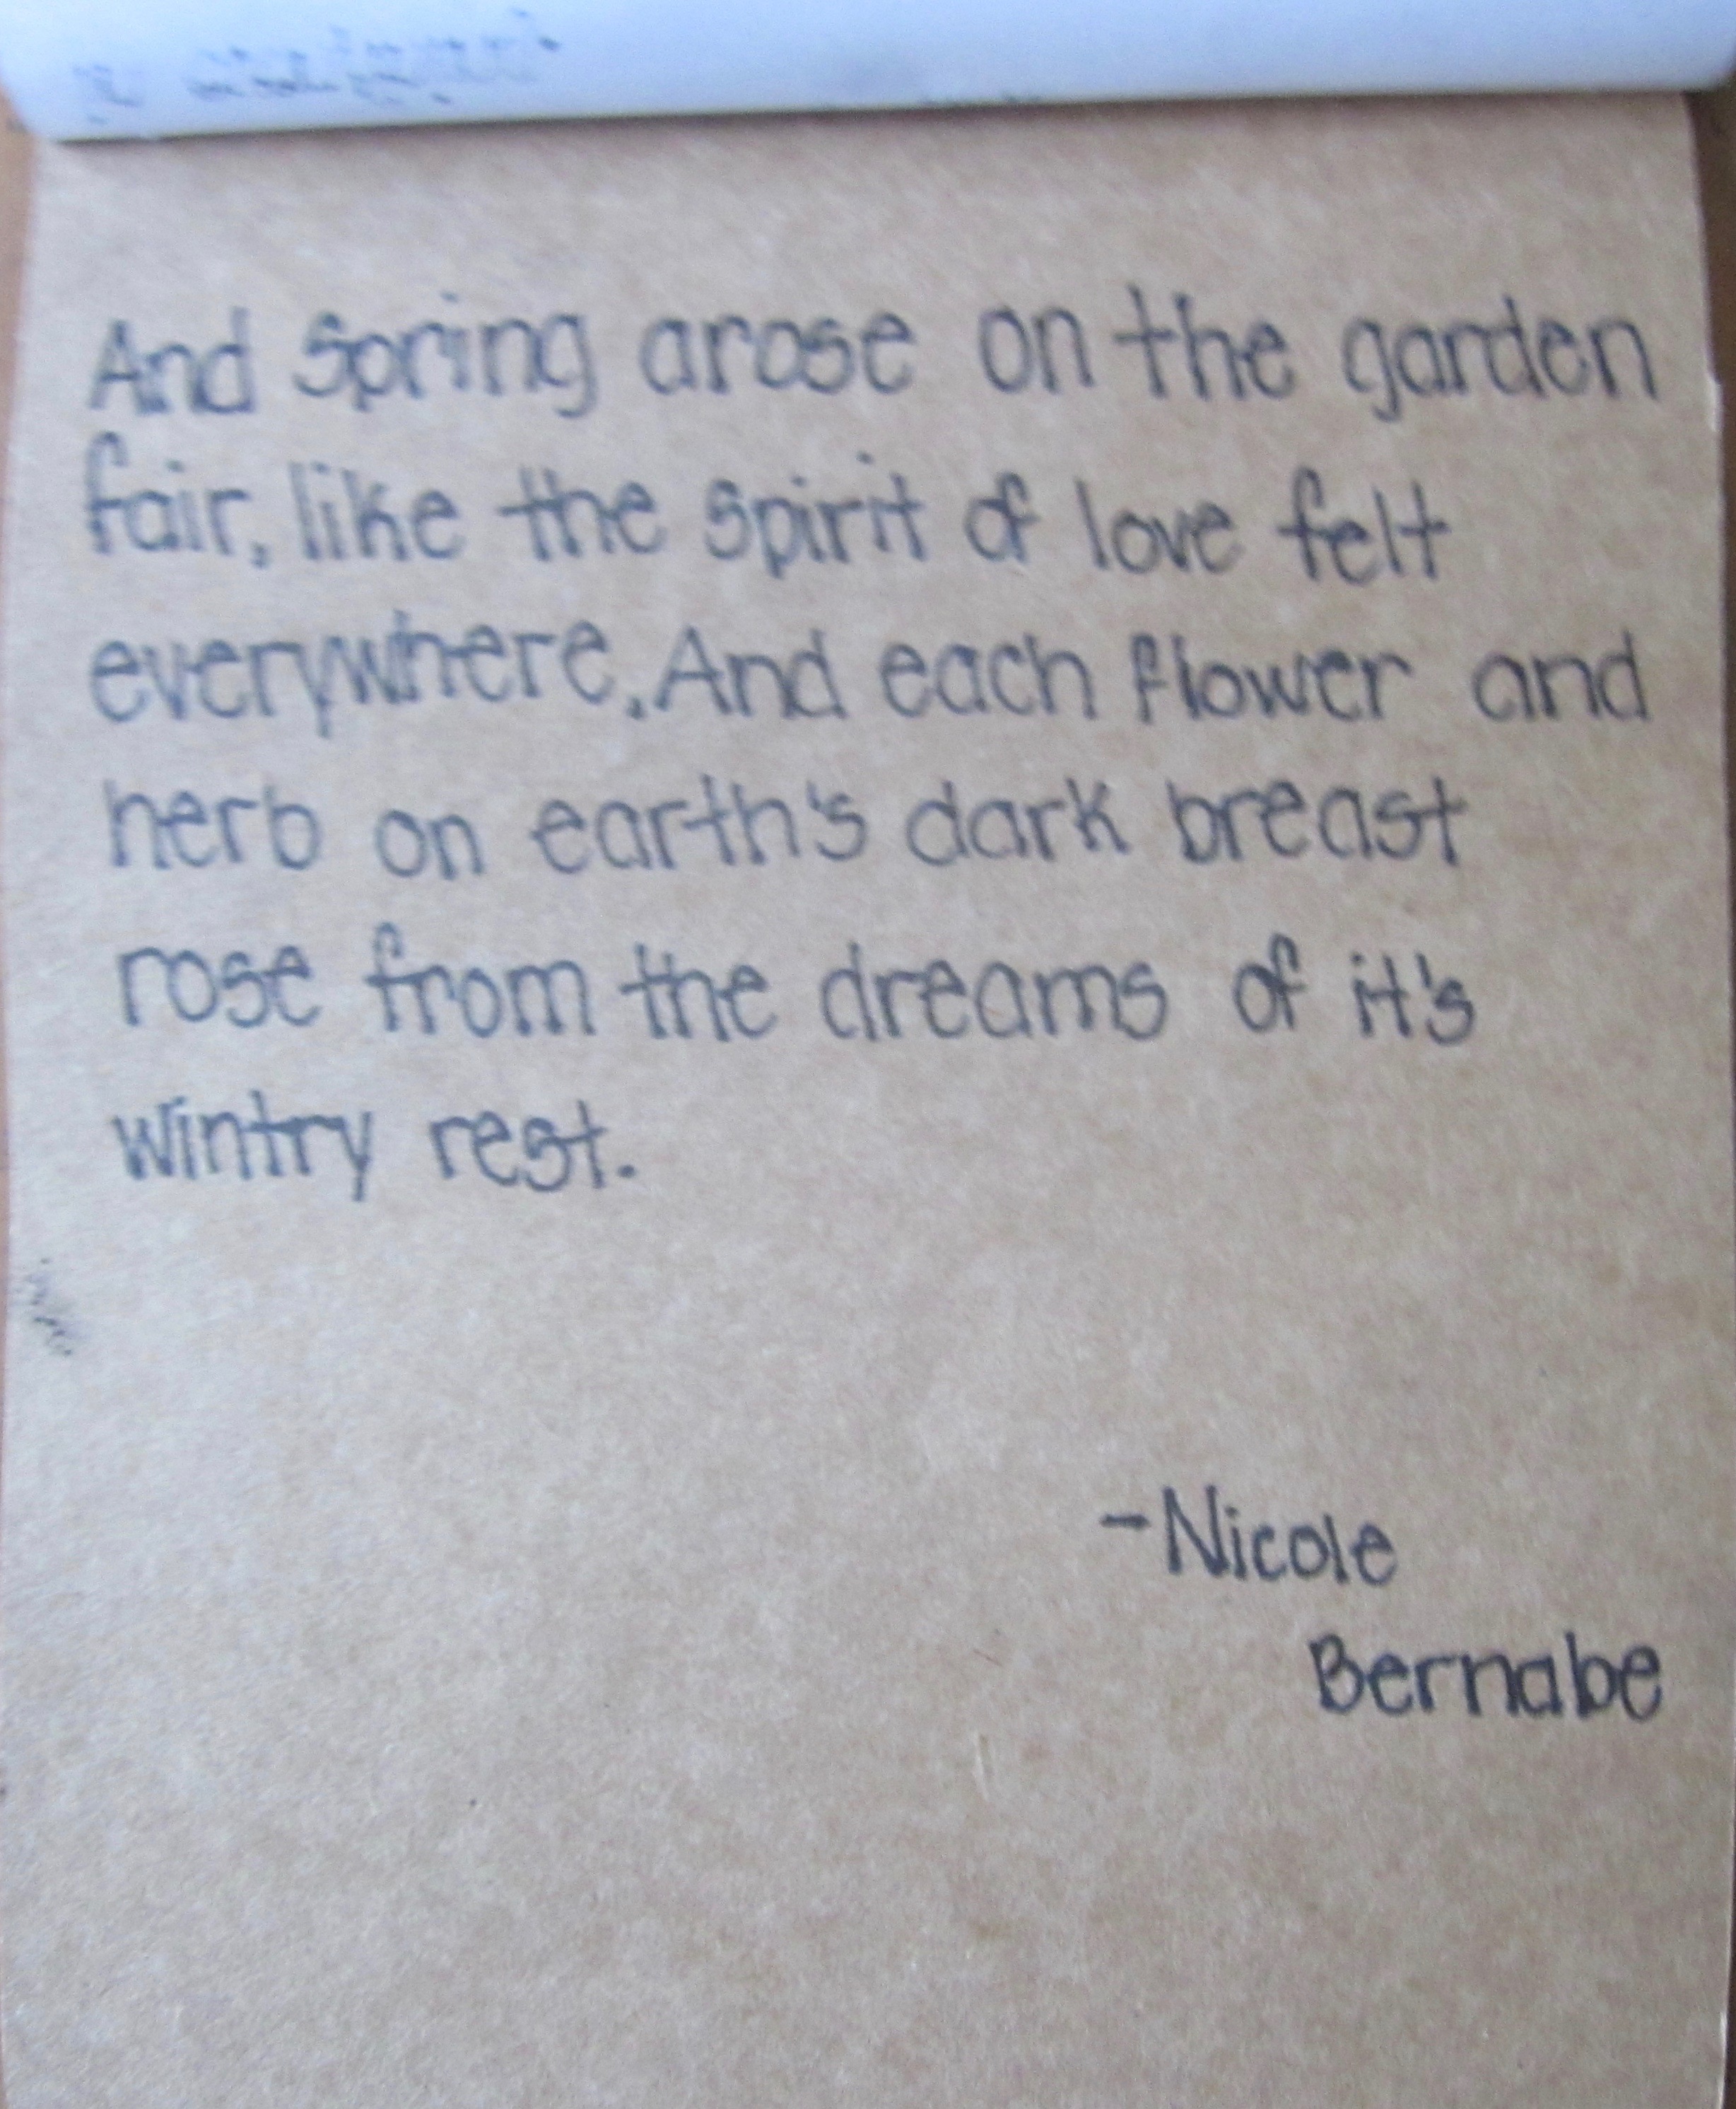 And Spring arose on the garden
fair, like the spirit of love felt
everywhere. And each flower and
herb on earth's dark breast
rose from the dreams of it's
wintry rest.
-Nicole
Bernabe